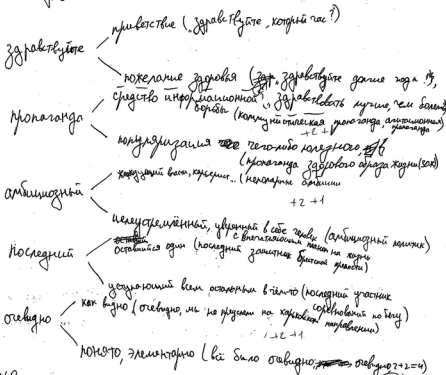 здравствуйте
приветствие (здравствуйте, который час?)
пожелание здоровья (здравствуйте долгие года
здравствовать лучше, чем болеть)
пропаганда
средство информационной борьбы (коммунистическая пропаганда, агитационная пропаганда
+2 +1
популяризация чего-либо полезного
(пропаганда здорового образа жизни (зож)
амбициозный
власти, карьерист... (непомерные амбиции
+2 +1
целеустремлённый, уверенный в себе человек (амбициозный политик)
с впечатляющими планами на жизнь
последний
оставшийся один (последний защитник Брестской крепости)
уступающий всем остальным в чём-то (последний участник
соревнования по бегу)
очевидно
как видно (очевидно, мы не преуспели на харьковском направлении)
+2 +1
понятно, элементарно (всё было очевидно, очевидно 2+2=4)